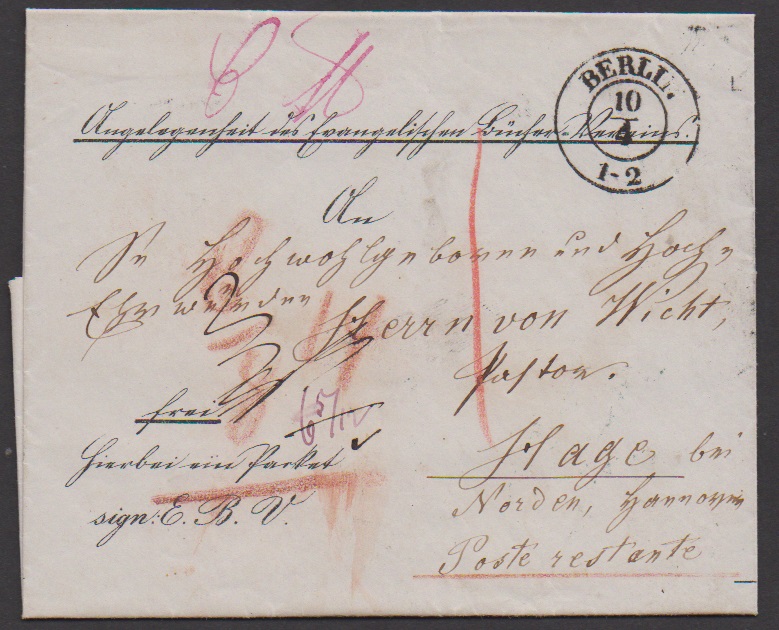 BERLIN.
10
4
1-2
Angelegenheit des Evangelischen Bücher-Vereins.
An
Sr Hochwohlgeboren und Hoch-
Ehrwürden
Herrn von Wicht,
Pastor.
frei
Hage bei
hierbei ein Packet
Norden, Hannover
sign: E. B. V.
Poste restante